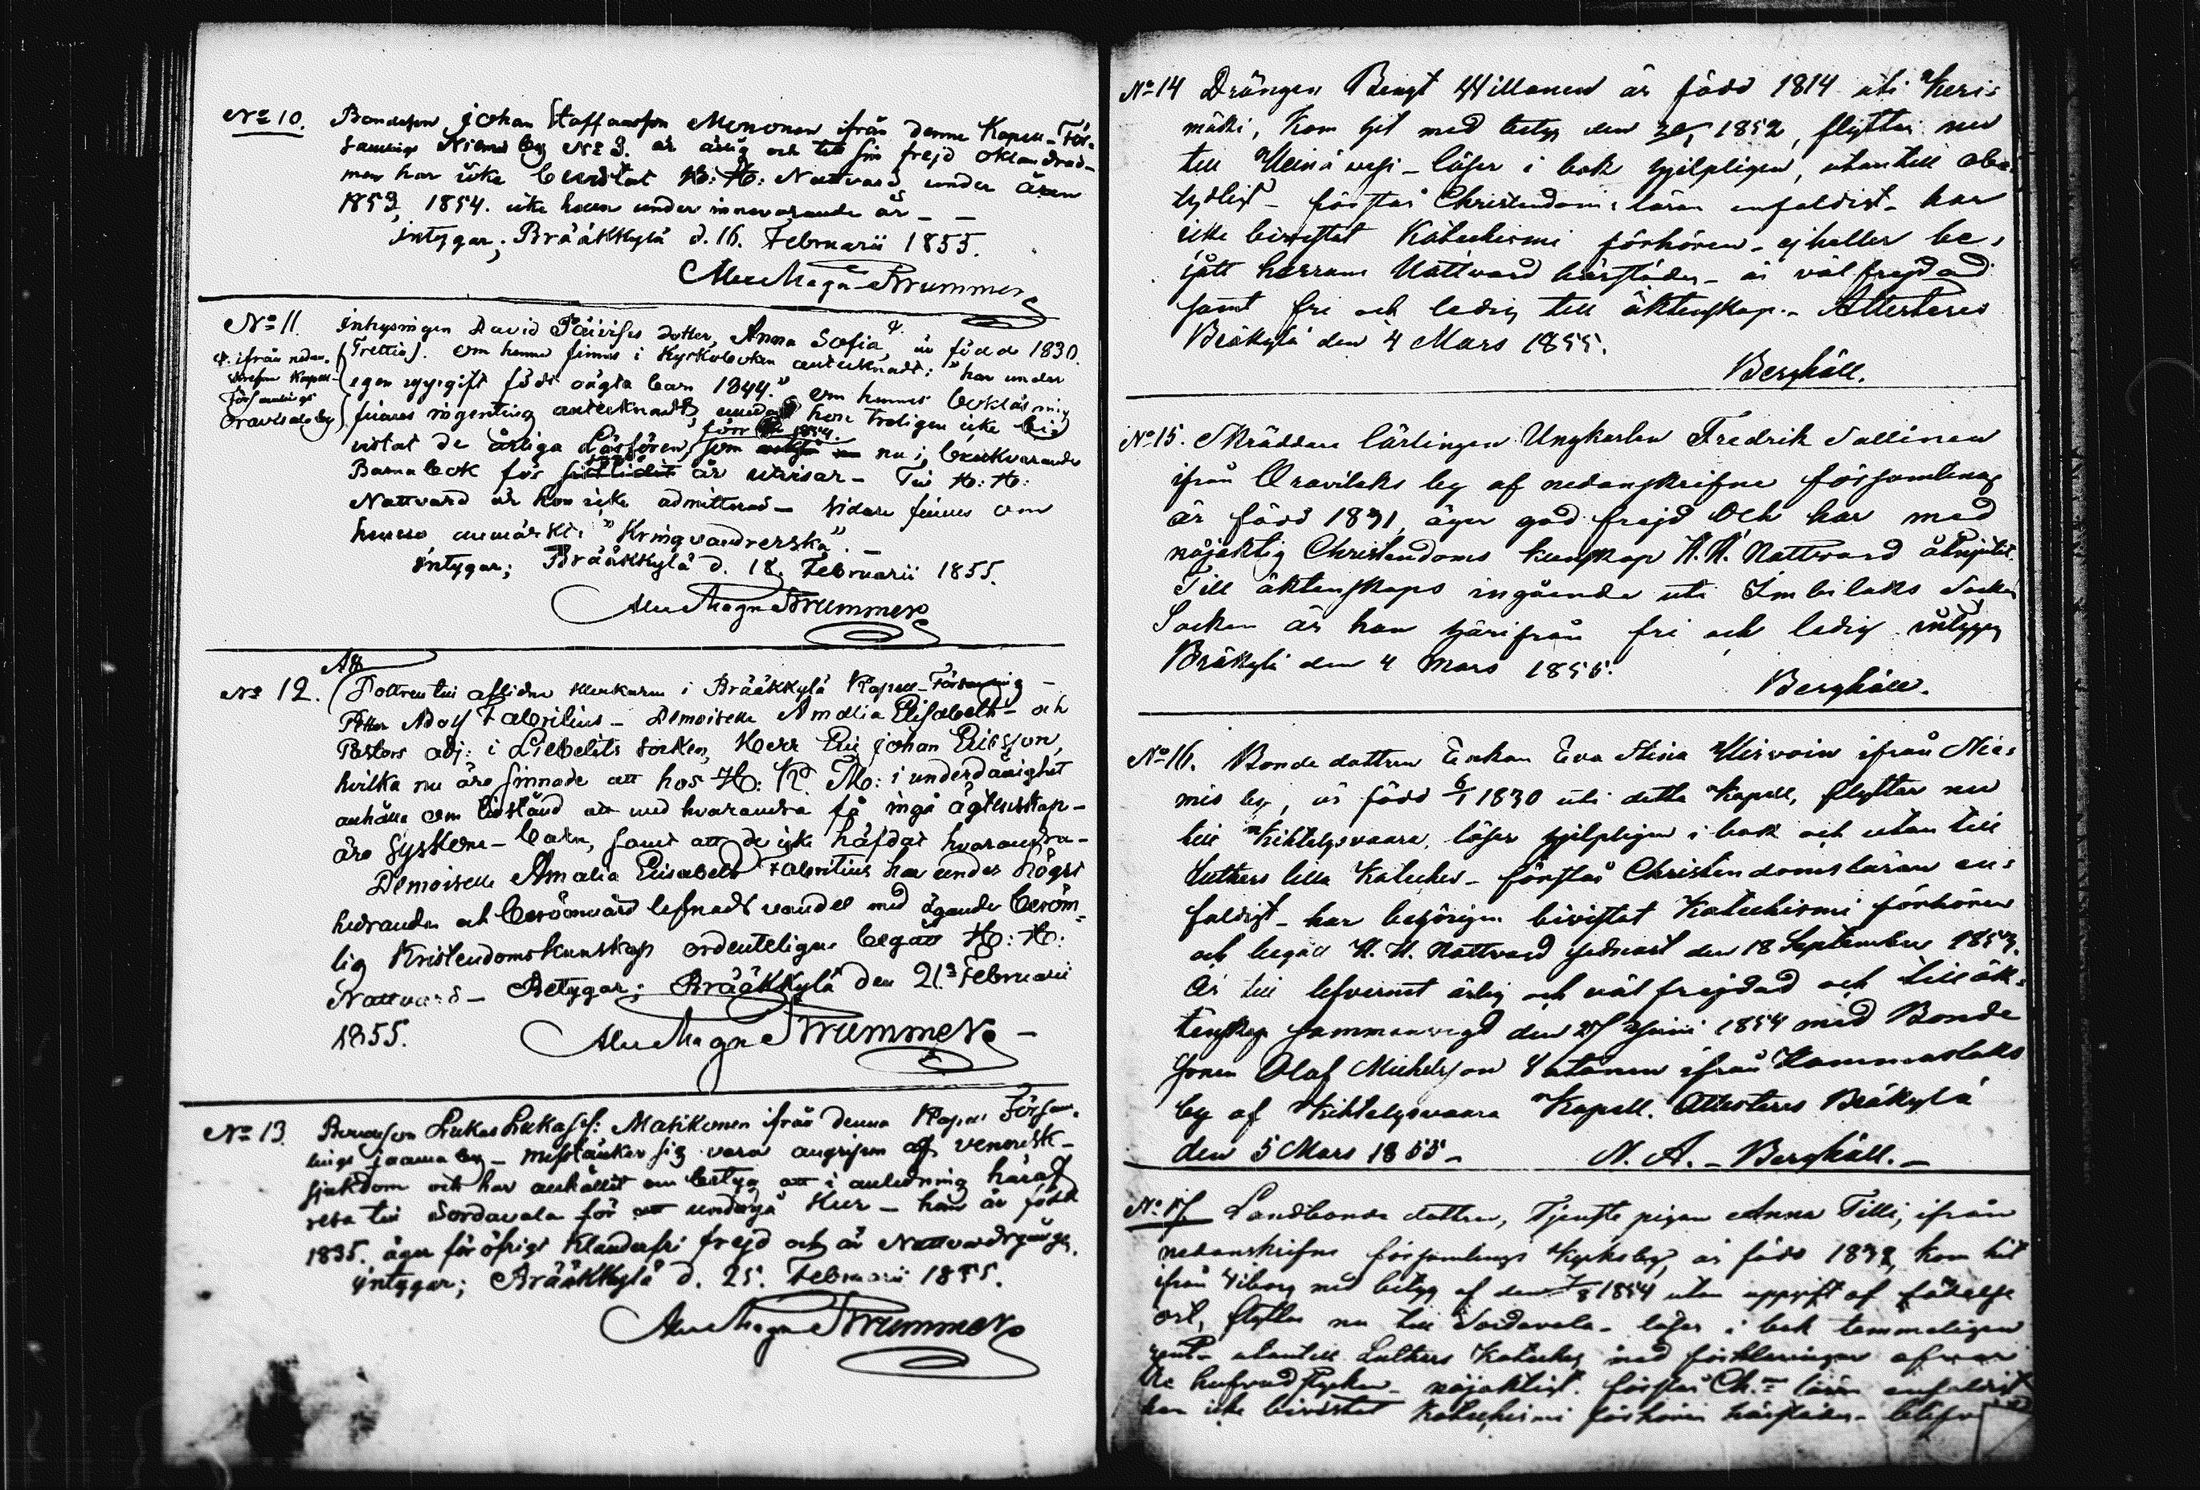 No 10. Bondeson Johan Staffansson Mononen ifrån denna Kapell-För-
samlings Niemis by No 3. är ärlig och till sin frejd oklandrad-
men har icke bevistat H: H: Nattvard under åren
1853, 1854. icke heller under innevarande år - -
Intygar; Brääkkylä d. 16. Februarii 1855.
Alex Magn Strummer
No 11. Inhysingen David Päivises dotter, Anna Sofia är född 1830.
(Trettio). Om henne finnes i Kyrkoboken antecknadt: "har under
egen uppgift födt oägta barn 1844." Om hennes bokläsning
finnes ingenting antecknadt, hon troligen icke bi-
vistat de årliga Läsförhören, som nu i, beskvarande
Barnabok för år utvisar - Till H: H:
Nattvard är hon icke admitterad - vidare finnes om
henne anmärkt: "Kringvandrerska". -
Intygar; Brääkkylä d. 18. Februarii 1855.
Alex Magn Strummer
ifrån nedan-
skrefne Kapell-
Församlings
Oravisalo by
No 12. Att
Dottren till aflidne klockaren i Brääkkylä Kapell-Församling -
Petter Adolf Fabritius - Demoiselle Amalia Elisabeth - och
Pastors adj: i Libelits socken, Herr Eric Johan Ericsson,
hvilka nu äro sinnade att hos H: K: M: i underdånighet
anhålla om tilstånd att med hvarandra få ingå ägtenskap -
äro Syskone-barn, samt att de icke häfdat hvarandra -
Demoiselle Amalia Elisabeth Fabritius har under högst
hedrande och berömvärd lefnads vandel med ägande beröm-
lig Kristendomskunskap ordenteligen begått H: H:
Nattvard - Betygar; Brääkkylä den 21 Februarii
1855. Alex Magn Strummer -
No 13. Bondeson Lukas Lukass: Matikonen ifrån denna Kapell Försam-
lings Jaama by - misstänker sig vara angripen af venerisk -
sjukdom och har anhållit om betyg att i anledning häraf
resa till Sordavala för att undergå Kur - han är född
1835. äger för öfrigt klanderfri frejd och är Nattvardsgånge.
Intygar; Brääkkylä d. 25. Februarii 1855.
Alex Magn Strummer
No 14 Drängen Bengt Willanen är född 1814 uti Keri-
mäki, kom hit med betyg den 1852, flyttar nu
till Heinävesi - läser i bok hjelpligen, utantill obe-
tydligt - förstår Christendoms läran enfaldigt - har
icke bivistat Katechismi förhören - ej heller be-
gått herrans Nattvard härstädes - är väl frejdad
samt fri och ledig till äktenskap. - Attesteras
Bräkylä den 4 Mars 1855.
Berghäll.
No 15. Skräddare lärlingen Ungkarlen Fredrik Sallinen
ifrån Oravilaks by af nedanskrifne församling
är född 1831, äger god frejd och har med
nöjaktig Christendoms kunskap H. H. Nattvard åtnjutit.
Till äktenskaps ingående uti Imbilaks Socken
Socken är han härifrån fri och ledig intygar
Bräkylä den 4 Mars 1855.
Berghäll.
No 16. Bonde dottren Enkan Eva Stina Hirvoin ifrån Nie-
mis by, är född 6/1 1830 uti detta Kapell, flyttar nu
till Kihtelysvaara, läser hjelpligen i bok och utan till
Luthers lilla Kateches - förstår Christendomsläran en-
faldigt - har behörigen bivistat Katechismi förhören
och begått H. H. Nattvard sednast den 18 September 1853.
Är till lefvernet ärlig och väl frejdad och till äk-
tenskap sammanvigd den 27 Juni 1854 med Bonde
sonen Olof Michelsson ifrån Hammaslaks
by af Kihtelysvaara Kapell. Attesteras Bräkylä
den 5 Mars 1855 - N. A. - Berghäll. -
No 17 Landbonde dottren, Tjenste pigan Anna Tilli, ifrån
nedanskrifne församlings Kyrkoby, är född 1832, kom hit
ifrån Wiborg med betyg af den 1854 utan uppgift af födelse
ort, flyttar nu till Sordavala - läser i bok temmeligen
rent - utantill Luthers Kateches med förklaringen
De hufvudstycken - nöjaktigt. förstår Ch. läran enfaldigt
har icke bivistat Katechismi förhören härstädes -